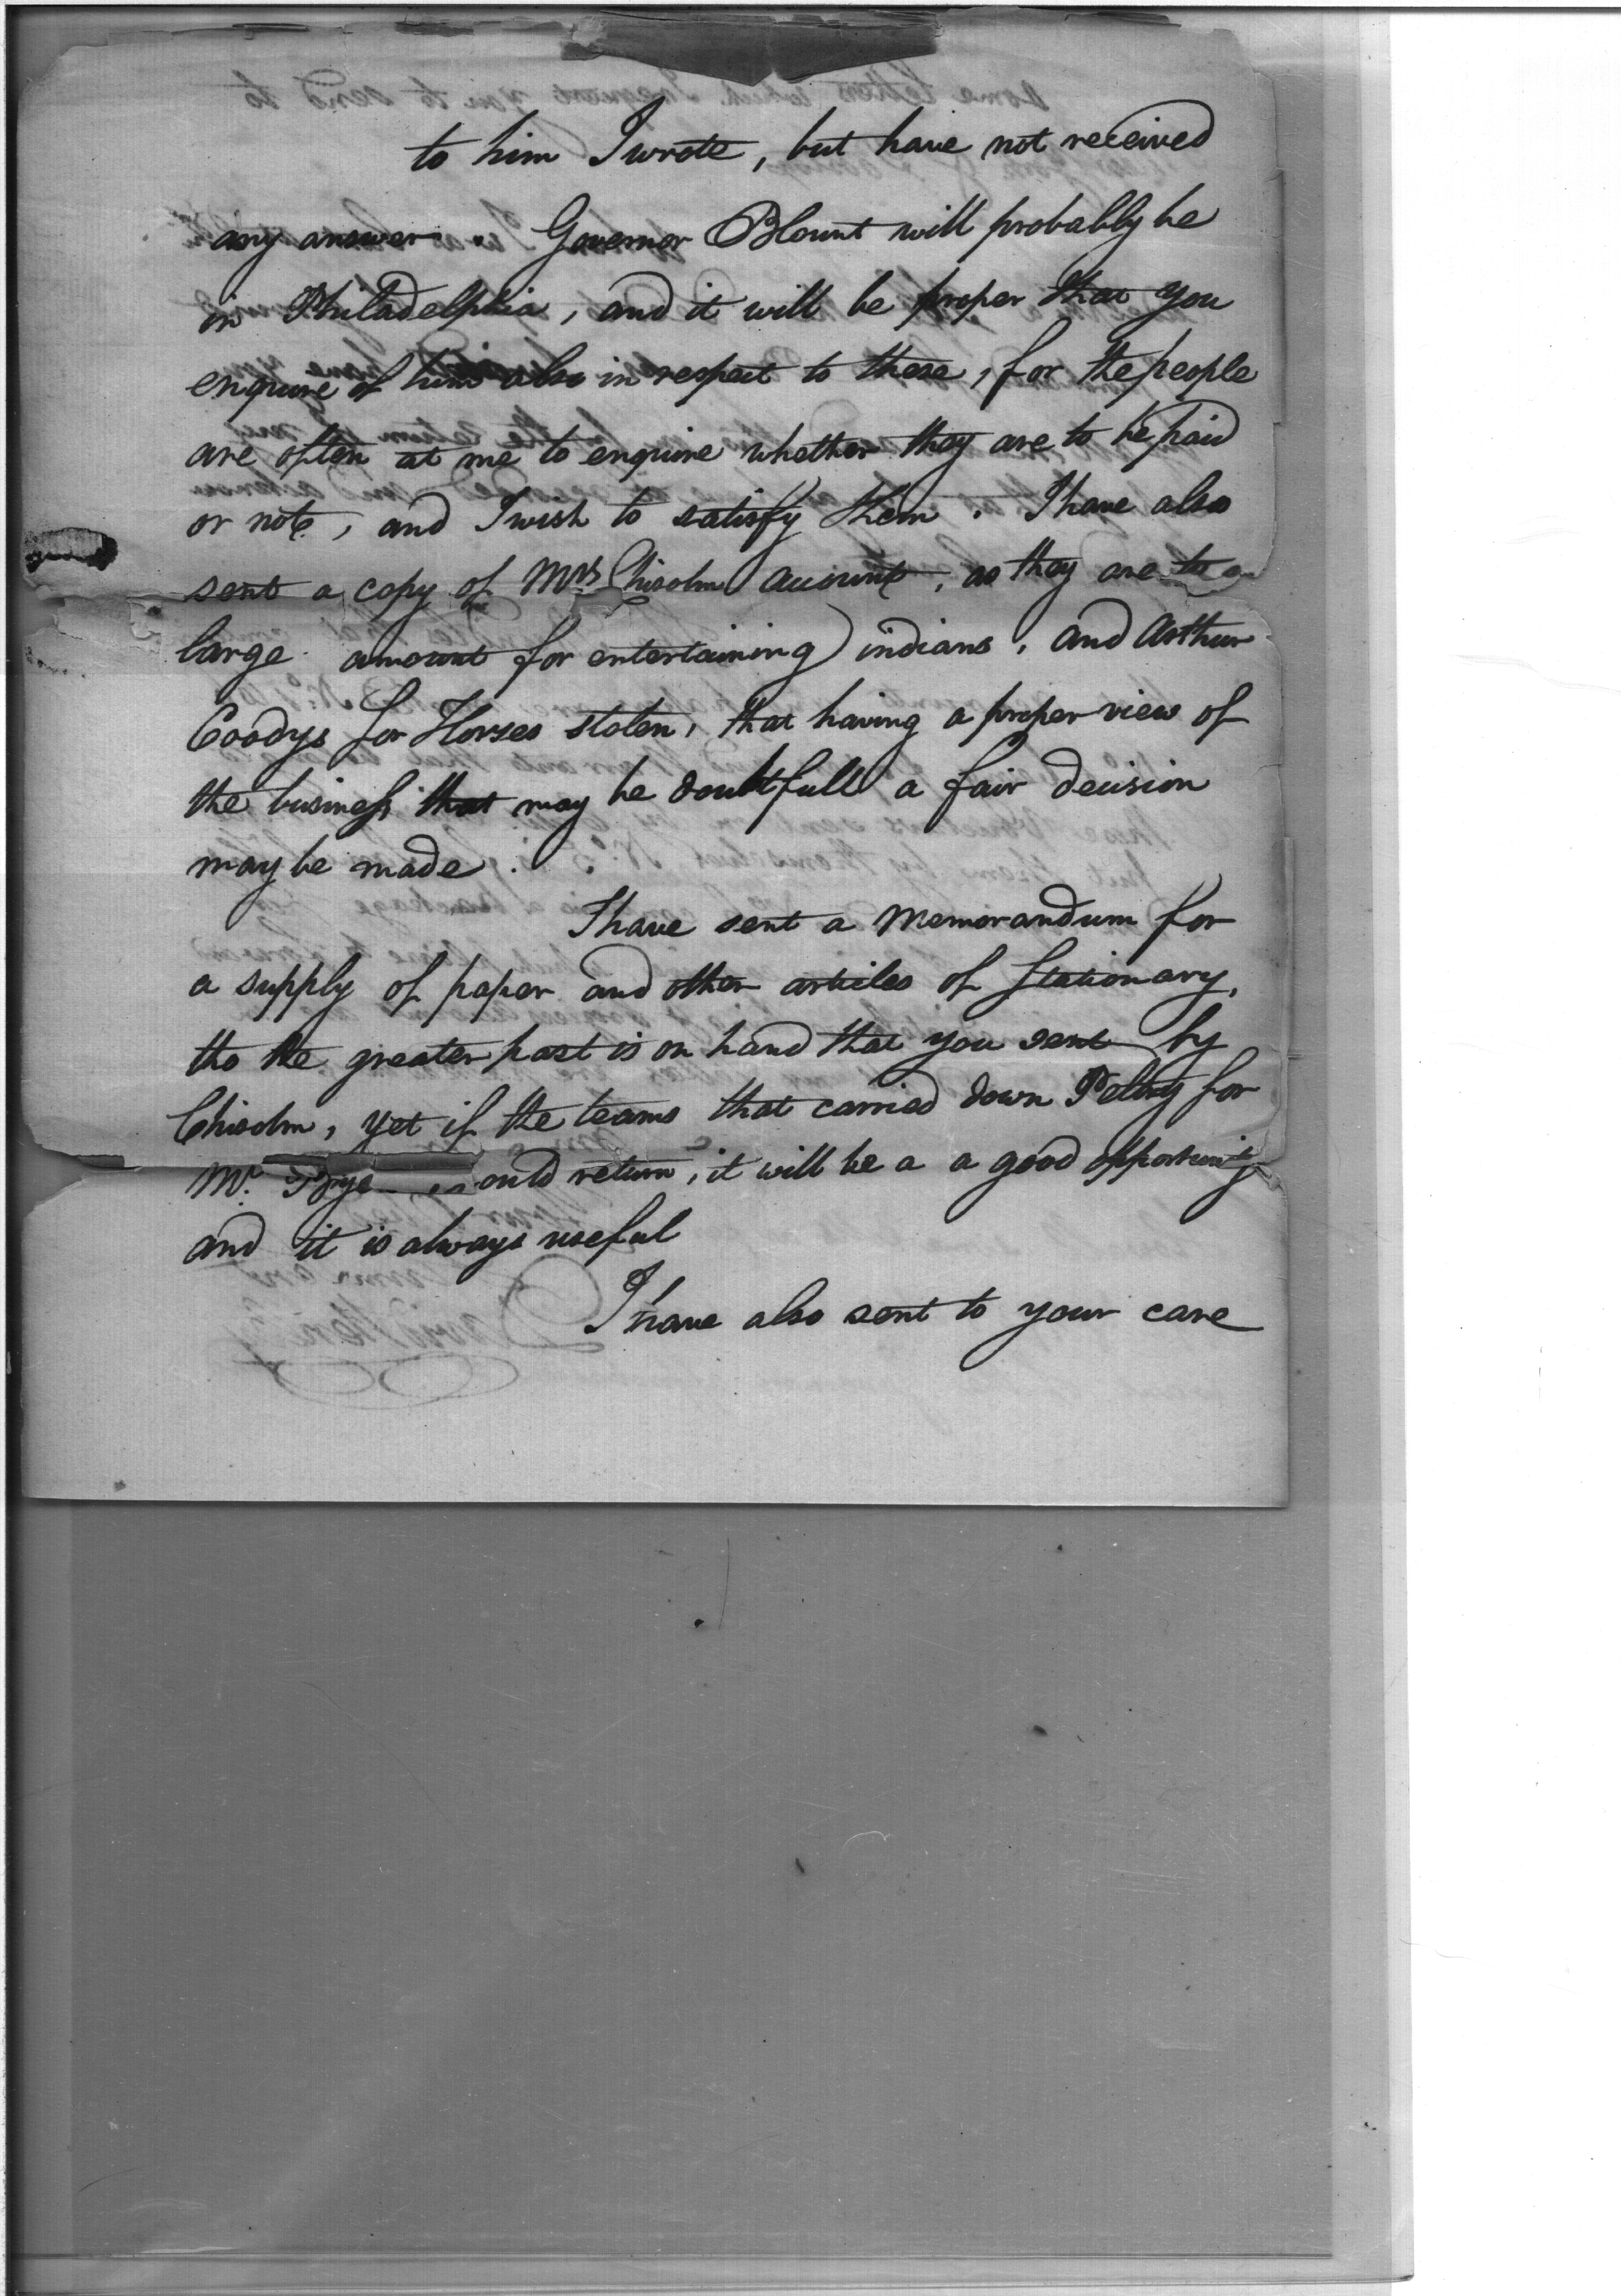 to him I wrote, but have not received
any answer. Governor Blount will probably be
in Philadelphia, and it will be proper that you
enquire of him also in respect to these, for the people
are often at me to enquire whether they are to be paid
or not, and I wish to satisfy them. I have also
sent a copy of Mrs Chisolm account, as they are to a
large amount for entertaining indians, and Arthur
Coodys for Horses stolen, that having a proper view of
the business that may be doubtfull a fair decision
may be made.
I have sent a Memorandum for
a supply of paper and other articles of Stationary,
tho the greater part is on hand that you sent by
Chisolm, yet if the teams that carried down Peltry for
Mr. ould return, it will be a a good opportunity
and it is always useful
I have also sent to your care